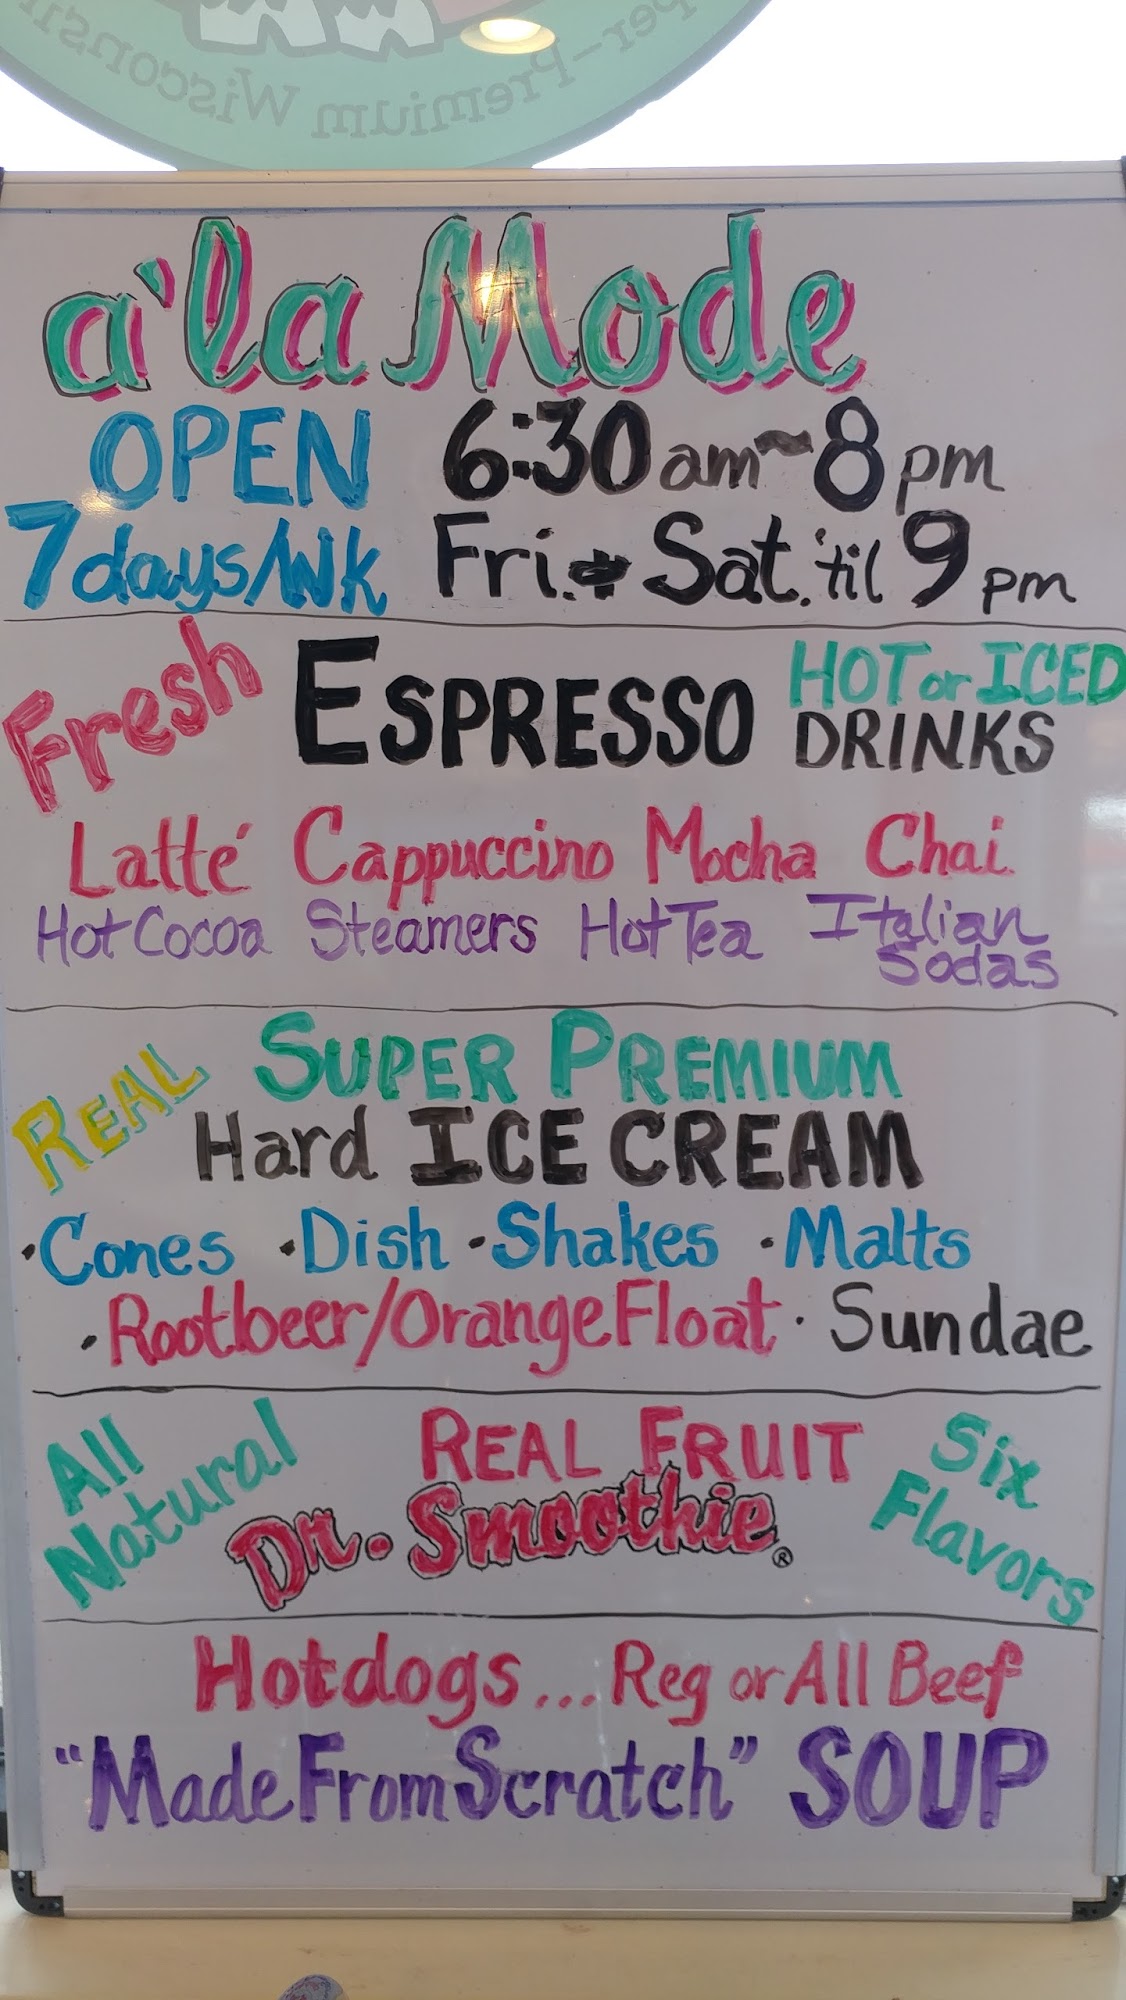 Super-Premium Wisconsin
a'la Mode
OPEN 6:30 am ~ 8 pm
7 days/Wk Fri. & Sat. 'til 9 pm
Fresh ESPRESSO HOT or ICED
DRINKS
Latté Cappuccino Mocha Chai
Hot Cocoa Steamers Hot Tea Italian
Sodas
REAL SUPER PREMIUM
Hard ICE CREAM
·Cones ·Dish ·Shakes ·Malts
·Rootbeer/Orange Float · Sundae
All Natural REAL FRUIT Six Flavors
Dr. Smoothie ®
Hotdogs... Reg or All Beef
"Made From Scratch" SOUP